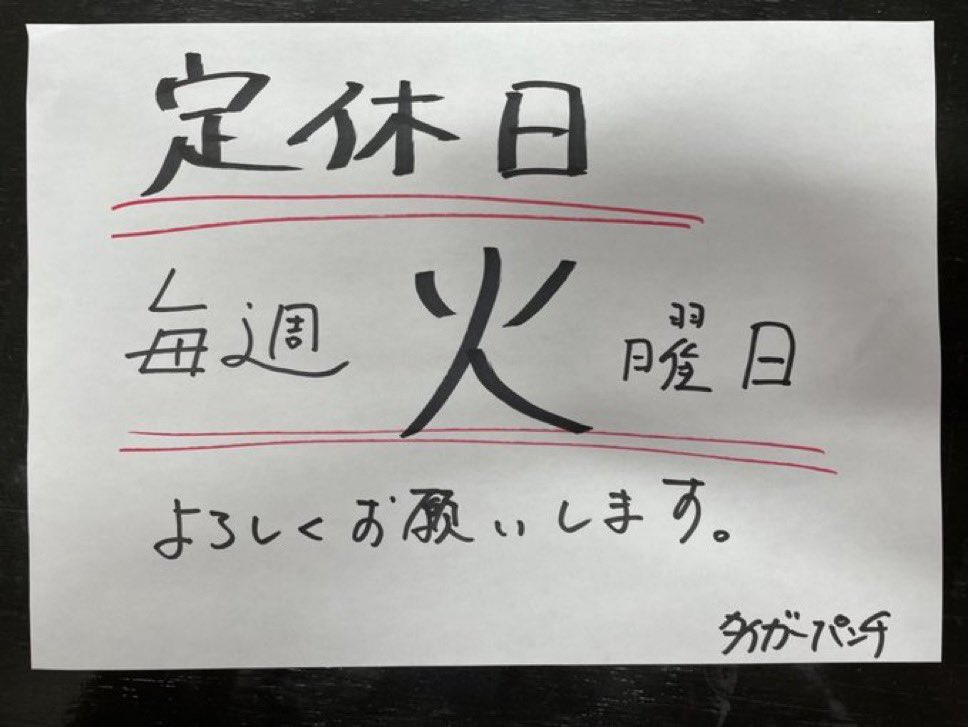 定休日
毎週火曜日
よろしくお願いします。
タイガーパンチ